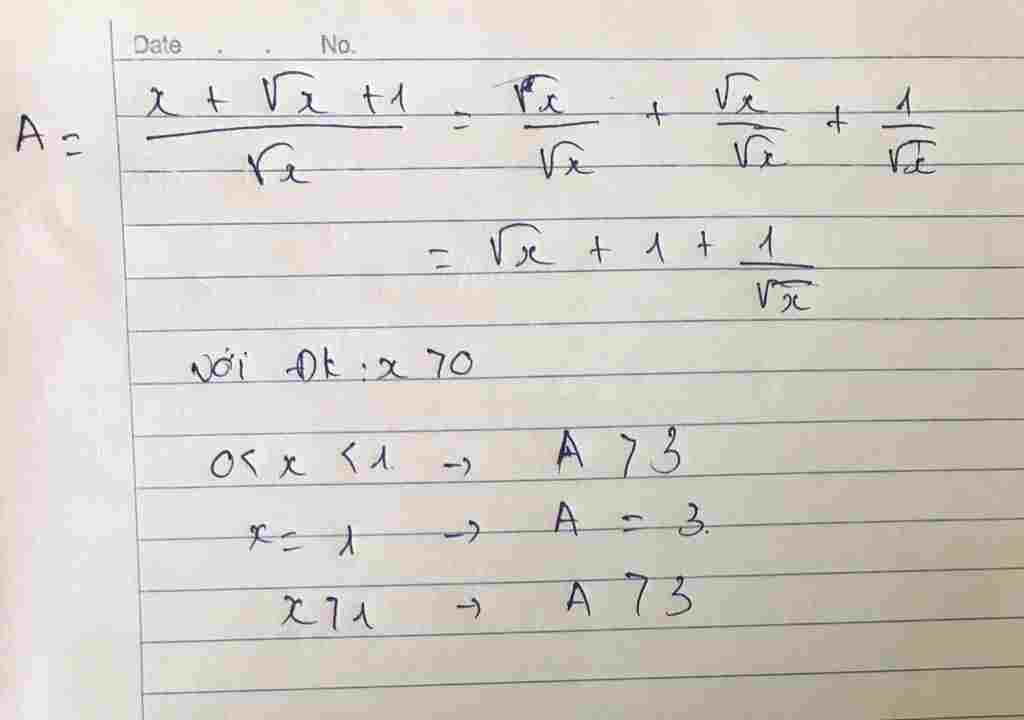 Date . . No.
A = \frac{x + \sqrt{x} + 1}{\sqrt{x}} = \frac{\sqrt{x}}{\sqrt{x}} + \frac{\sqrt{x}}{\sqrt{x}} + \frac{1}{\sqrt{x}}
= \sqrt{x} + 1 + \frac{1}{\sqrt{x}}
Với Đk : x > 0
0 < x < 1 → A > 3
x = 1 → A = 3.
x > 1 → A > 3